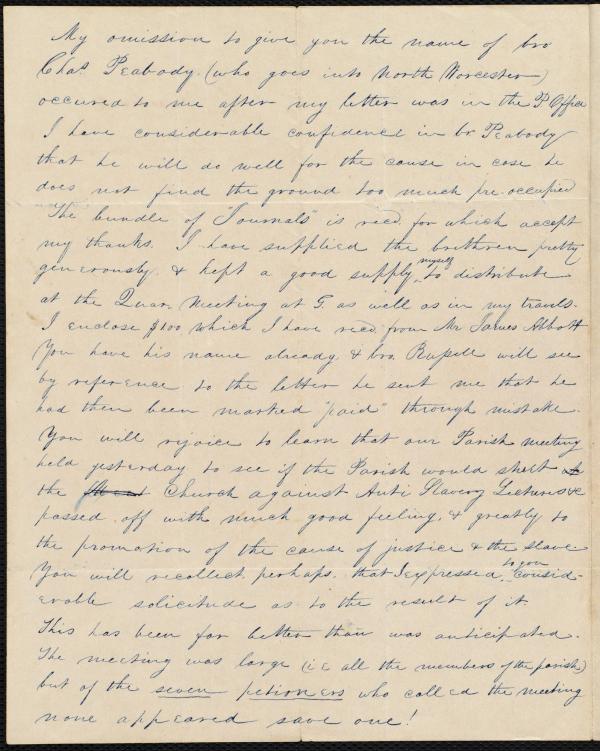 My omission to give you the name of bro
Chas Peabody (who goes into North Worcester)
occured to me after my letter was in the P. Office
I have considerable confidence in br Peabody
that he will do well for the cause in case he
does not find the ground too much pre-occupied
The bundle of "Journals" is recd. for which accept
my thanks. I have supplied the brethren pretty
generously & kept a good supply myself to distribute
at the Quar. Meeting at F. as well as in my travls.
I enclose $1.00 which I have recd. from Mr James Abbott
You have his name already & bro. Russell will see
by reference to the letter he sent me that he
had then been marked "paid" through mistake.
You will rejoice to learn that our Parish meeting
held yesterday to see if the Parish would shut
the Church against Anti Slavery Lectures &c
passed off with much good feeling, & greatly to
the promotion of the cause of justice & the slave
You will recollect perhaps, that I expressed to you consid-
erable solicitude as to the result of it.
This has been far better than was anticipated.
The meeting was large (i e all the members of the parish)
but of the seven petioners who called the meeting
none appeared save one!